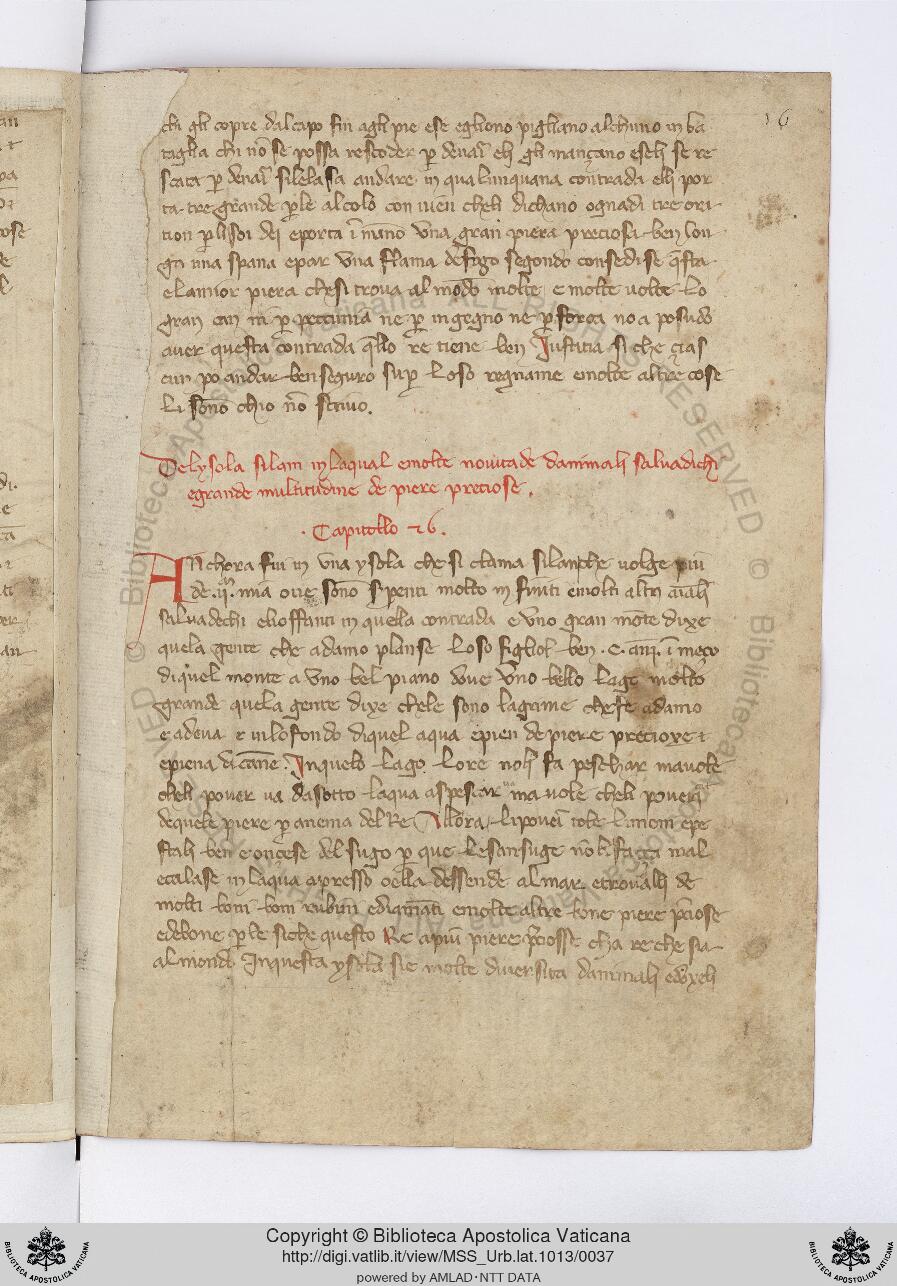 16
chi gli copre dal capo fin agli pie ese egliono pigliano alchuno in ba
taglia chi nō se possa rescoder p denari eli gli mançano eseli se re
scata p denari si lela sa andare in qualunquana contrada eli por
ta tre grande p le al colo con iuen cheli dichano ognadi tre ori
tion p li soi dei eporta ī mano vna gran piera preciosa ben lon
ga una spana epar vna flama de fogo segondo consedise q̄sta
el amior piera che si trova al mōdo molte e molte uolte lo
gran can ni p peccunia ne p ingegno ne p força no a posudo
aver questa contrada q̄llo re tiene ben Justitia si che ças
cun po andar ben seguro sup loso regname emolte altre cose
li sono chio nō scrivo.
De lysola silam in laqual emolte nouitade danimali saluadichi
egrande multitudine de piere preciose.
Capitollo 26.
ANchora fui in vna ysola che si clama silan che uolge piu
de .ij. mia oue sono serpenti molto in finiti emolti altri aiali
saluadechi elioffanti in quella contrada e vno gran mōte dixe
quela gente che adamo planse loso figliol ben .c. ani. ī meço
di quel monte a vno bel piano vue vno bello lago molto
grande quela gente dixe chele sono lagrime che fe adamo
e adeua e in lo fondo di quel aqua epien de piere precioxe
epiena di cane. In quelo lago lo re noli fa peschar ma uole
cheli poueri va da sotto laqua a spescar ma uole cheli poueri
de quele piere p anema del Re Allora li poueri tole limoni epe
stali ben e onçese del sugo p que le sansuge nō li faça mal
ecalase in laqua apresso oella dessende al mar etrouali de
molti boni boni rubini ediamāti emolte altre bone piere p̄ciose
edebone p le siche questo Re a piu piere p̄ciosse cha re che sia
al mondo In questa ysola sie molte diuersita danimali edoxeli
Copyright © Biblioteca Apostolica Vaticana
http://digi.vatlib.it/view/MSS_Urb.lat.1013/0037
powered by AMLAD•NTT DATA
BIBLIOTECA APOSTOLICA VATICANA
BIBLIOTECA APOSTOLICA VATICANA